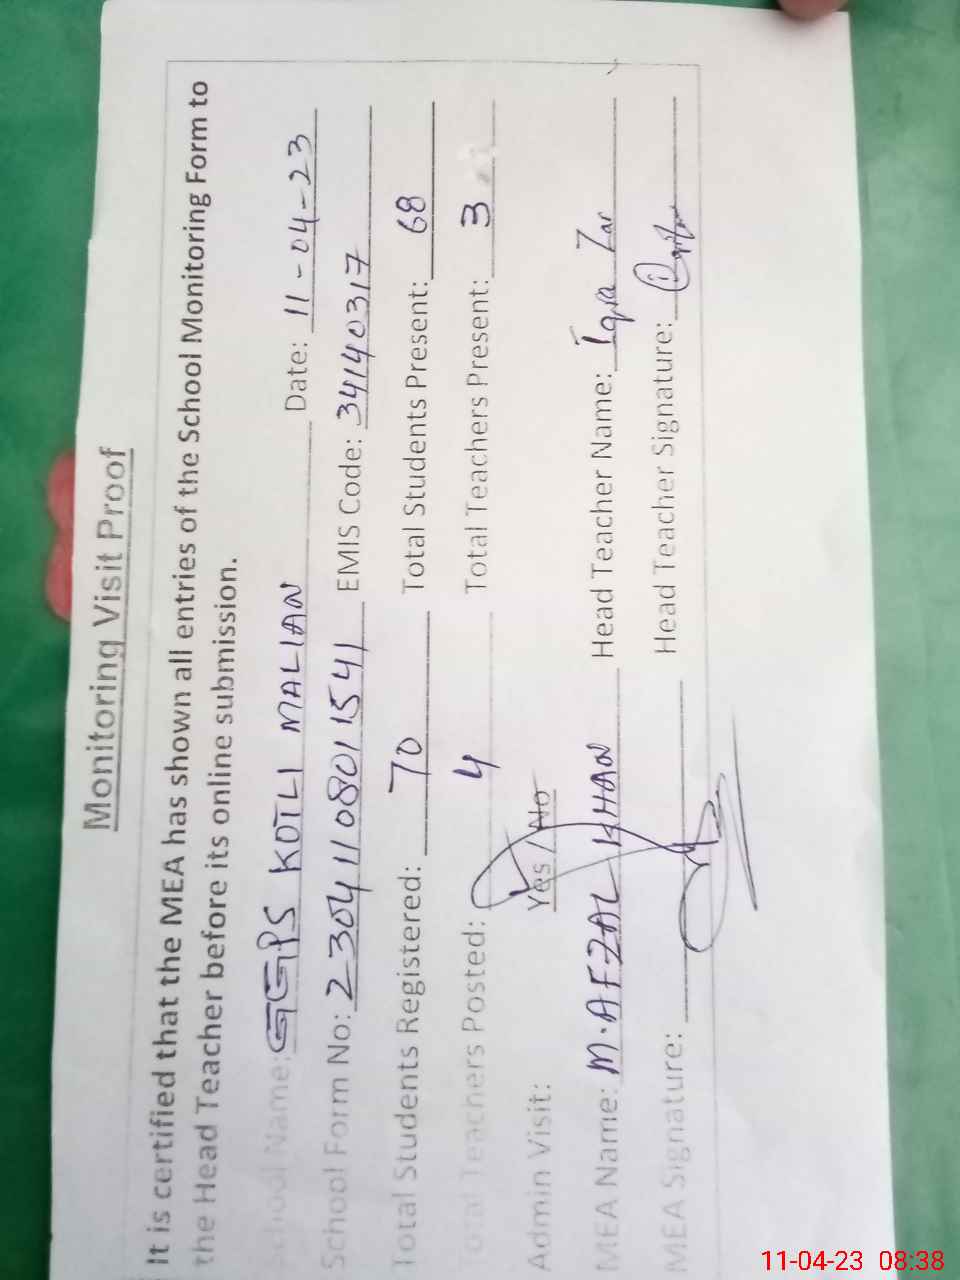 Monitoring Visit Proof
It is certified that the MEA has shown all entries of the School Monitoring Form to
the Head Teacher before its online submission.
School Name: GGPS KOTLI MALIAN Date: 11-04-23
School Form No: 23041108011541 EMIS Code: 34140317
Total Students Registered: 70 Total Students Present: 68
Total Teachers Posted: 4 Total Teachers Present: 3
Admin Visit: Yes / No
MEA Name: M.AFZAL KHAN Head Teacher Name: Iqra Zar
MEA Signature: Head Teacher Signature:
11-04-23 08:38